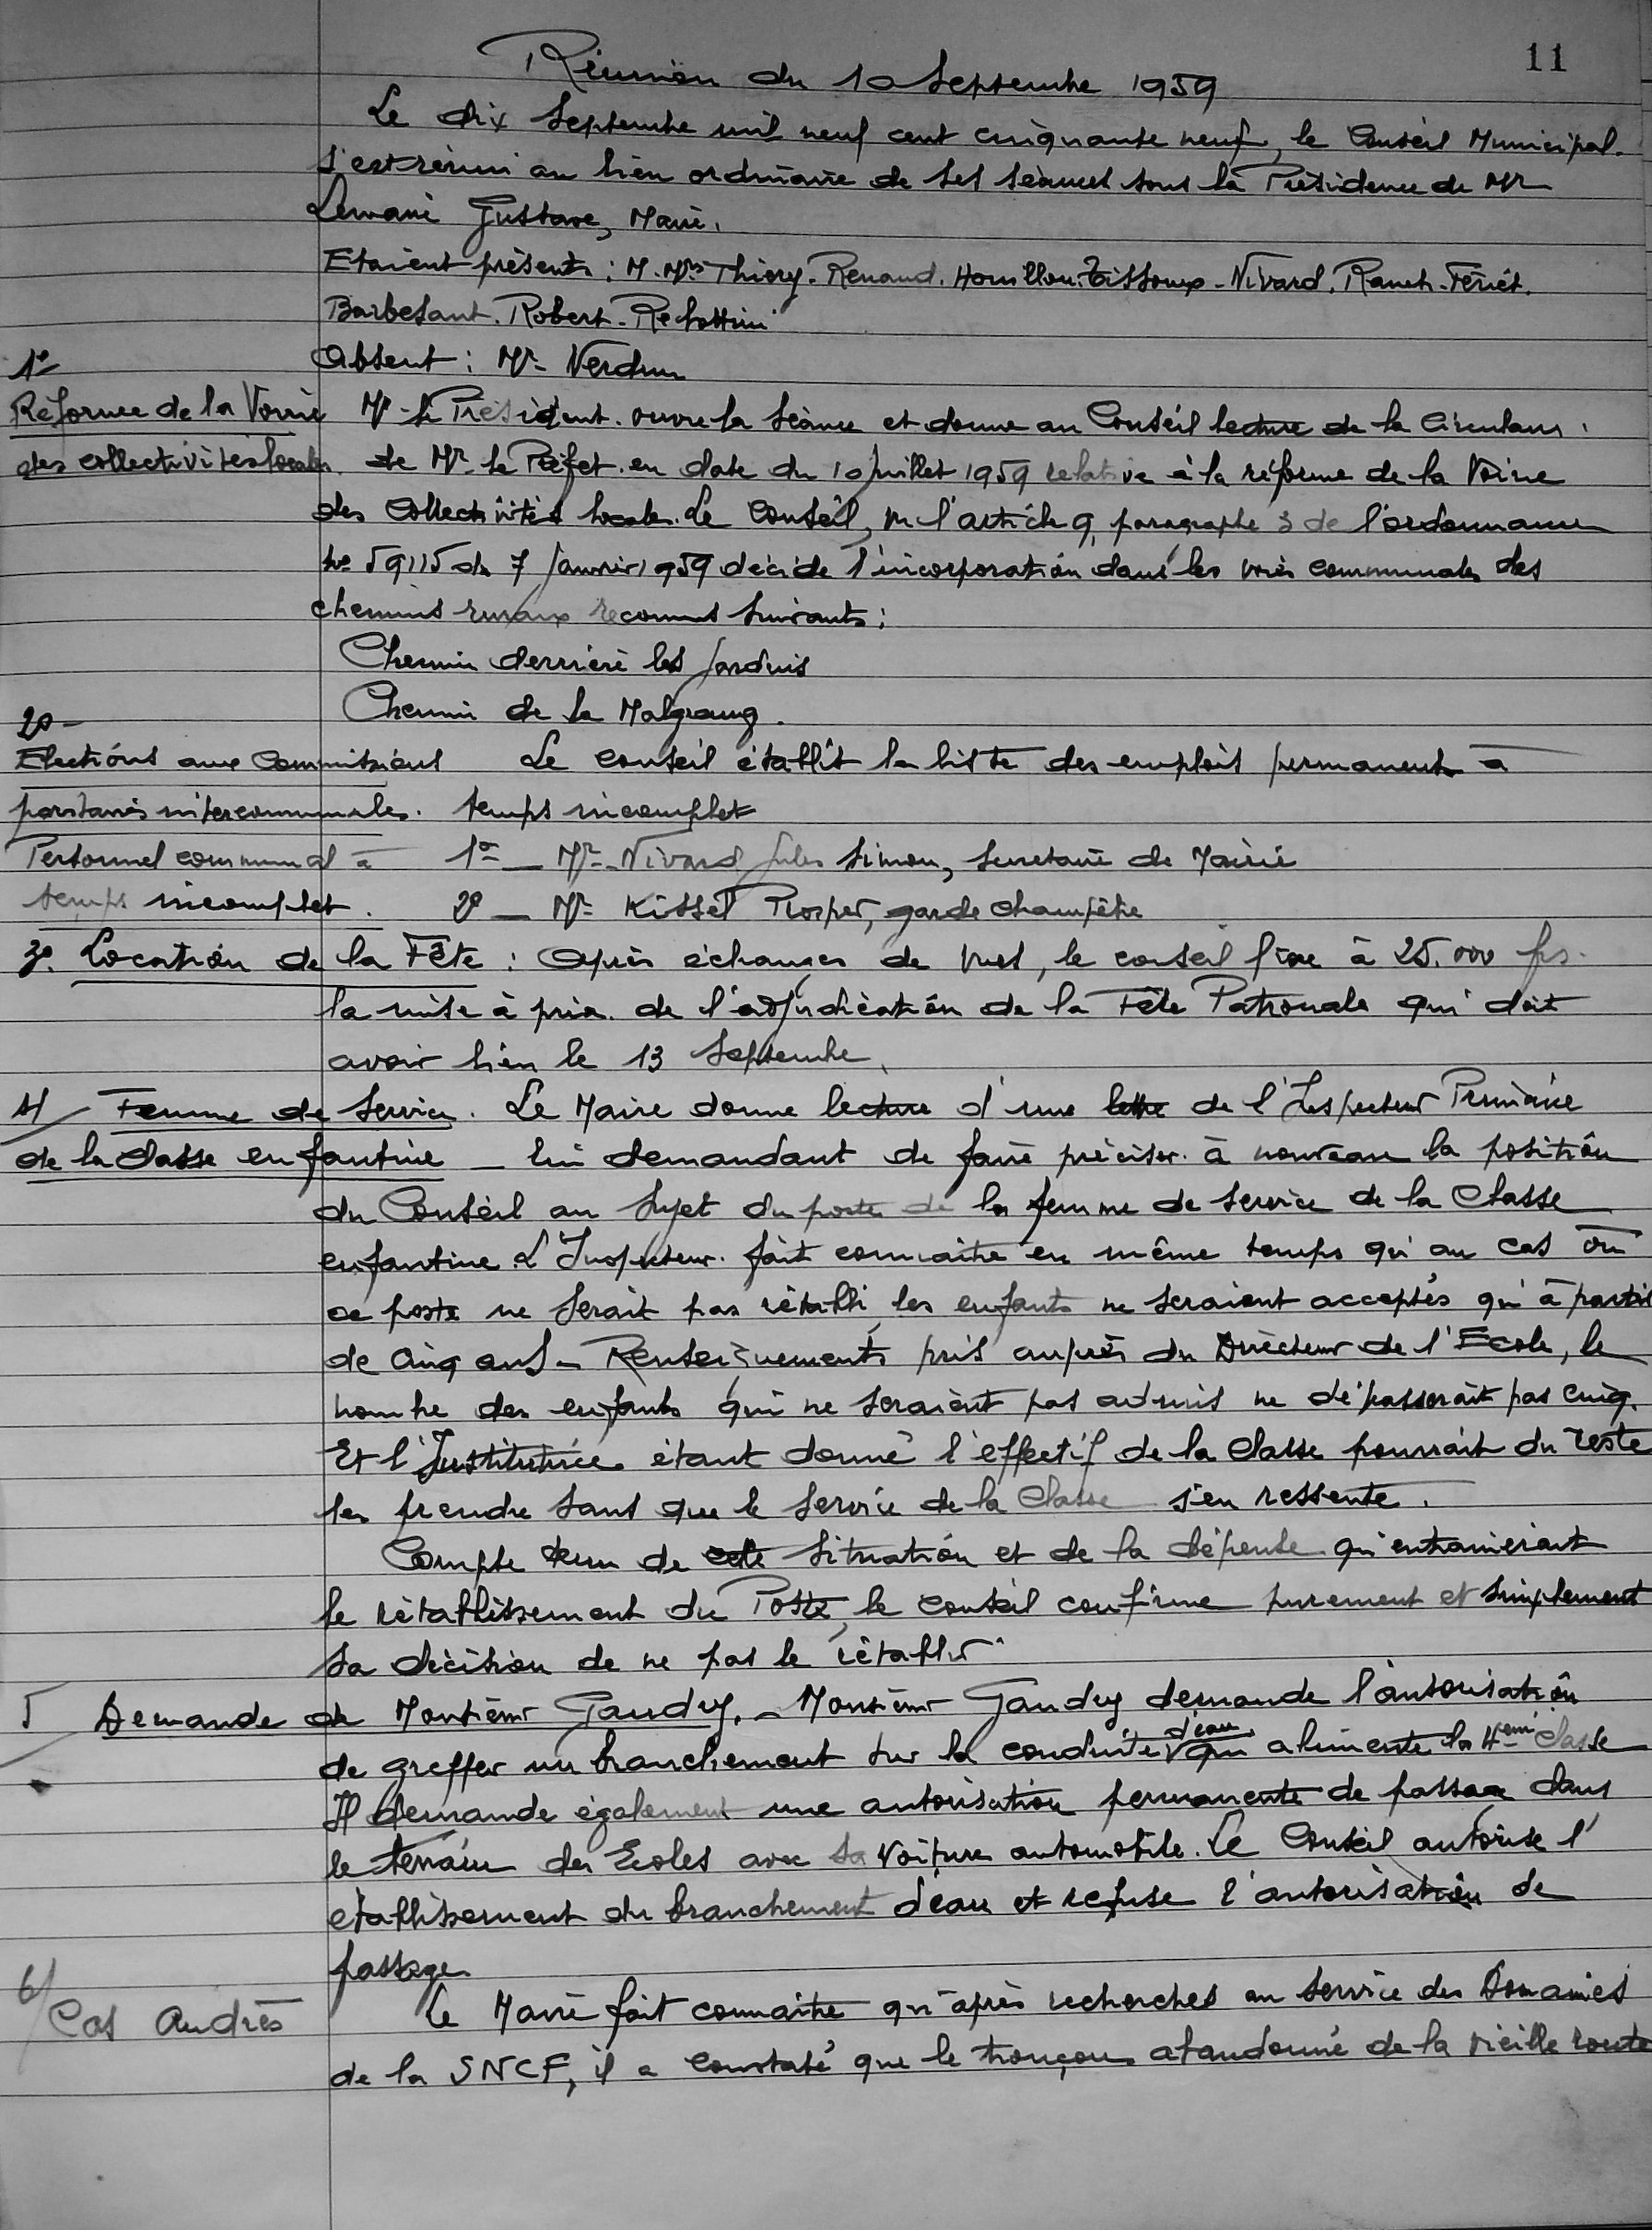 11
Réunion du 10 Septembre 1959
Le dix Septembre mil neuf cent cinquante neuf, le Conseil Municipal
s'est réuni au lieu ordinaire de ses séances sous la Présidence de Mr
Lemaire Gustave, Maire.
Etaient présents : M. Mrs Thiery - Renaud. Houillon. Tissoux - Nivard. Rauch - Fériet.
Barbesant. Robert - Rebottini
Absent : Mr Verdun
1°
Réforme de la Voirie Mr le Président ouvre la séance et donne au Conseil lecture de la Circulaire
des collectivités locales. de Mr le Préfet en date du 10 Juillet 1959 relative à la réforme de la Voirie
des Collectivités locales. Le Conseil, vu l'article 9, paragraphe 3 de l'ordonnance
No 59115 du 7 Janvier 1959 décide l'incorporation dans les voies communales des
chemins ruraux reconnus suivants :
Chemin derrière les Jardins
Chemin de la Malgrang.
2° -
Elections aux Commissions Le conseil établit la liste des emplois permanents à
paritaires intercommunales. temps incomplet
Personnel communal à 1° - Mr Nivard Jules Simon, Secrétaire de Mairie
temps incomplet. 2° - Mr Kissel Prosper, garde champêtre
3°. Location de la Fête : Après échanges de vues, le conseil fixe à 25.000 frs.
la mise à prix de l'adjudication de la Fête Patronale qui doit
avoir lieu le 13 Septembre.
4/ Femme de Service. Le Maire donne lecture d'une lettre de l'Inspecteur Primaire
de la classe enfantine - lui demandant de faire préciser à nouveau la position
du Conseil au sujet du poste de la femme de service de la Classe
enfantine. L'Inspecteur fait connaître en même temps qu'au cas où
ce poste ne serait pas rétabli, les enfants ne seraient acceptés qu'à partir
de cinq ans - Renseignements pris auprès du Directeur de l'Ecole, le
nombre des enfants qui ne seraient pas admis ne dépasserait pas cinq.
Et l'Institutrice étant donné l'effectif de la Classe pourrait du reste
les prendre sans que le service de la Classe s'en ressente.
Compte tenu de cette situation et de la dépense qu'entraînerait
le rétablissement du Poste, le conseil confirme purement et simplement
sa décision de ne pas le rétablir.
5 Demande de Monsieur Gaudry. - Monsieur Gaudry demande l'autorisation
de greffer un branchement sur la conduite d'eau qui alimente la 4eme Classe
Il demande également une autorisation permanente de passage dans
le terrain des Ecoles avec sa voiture automobile. Le Conseil autorise l'
établissement du branchement d'eau et refuse l'autorisation de
passage
6/
Cas Andrès Le Maire fait connaître qu'après recherches au service des Domaines
de la SNCF, il a constaté que le tronçon abandonné de la vieille route